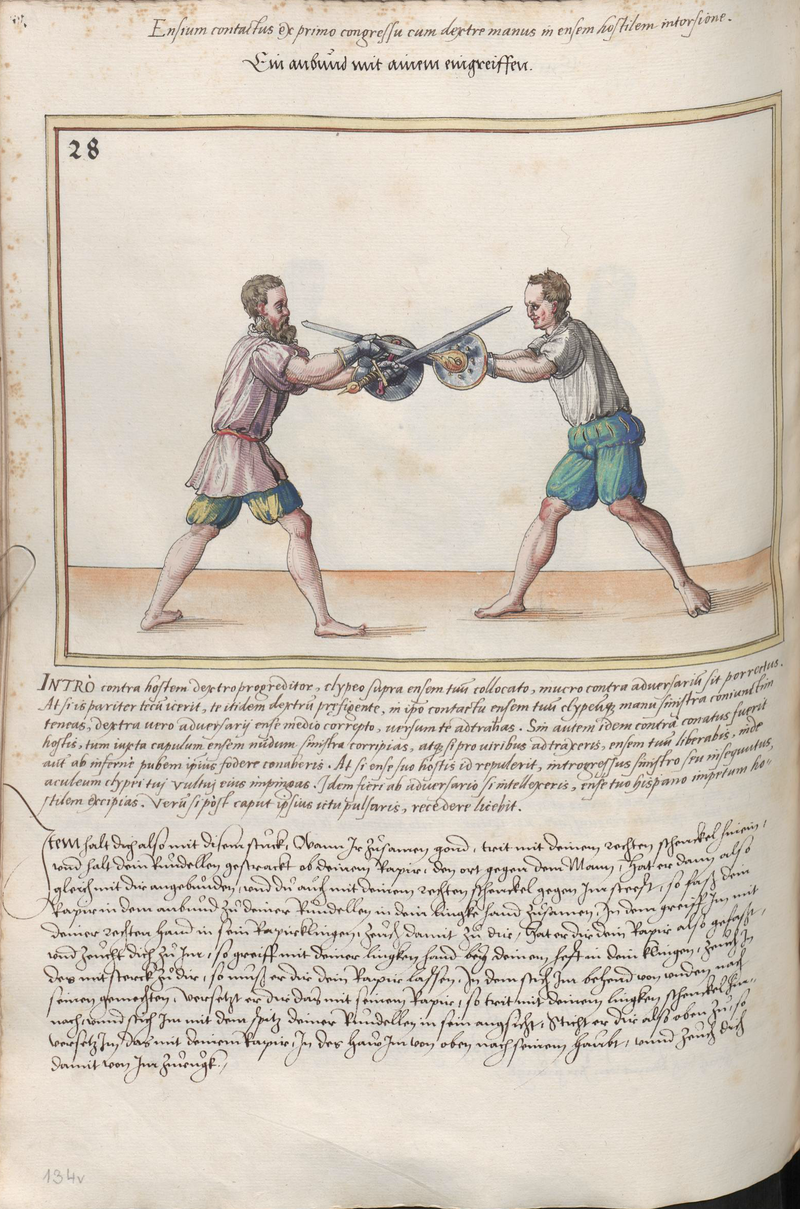 Ensium contactus ex primo congressu cum dextre manus in ensem hostilem intorsione.
Ein anbund mit ainem eingreiffen.
28
INTRÒ contra hostem dextro progreditor, clypeo supra ensem tuū collocato, mucro contra adversariū sit porrectus.
At si is pariter tecū iecerit, te itidem dextrū prefigente, in ipō contactu ensem tuū clypeūq; manu sinistra coniunctim
teneas, dextra vero adversarij ense medio correpto, versum te adtrahas. Sin autem idem contrà conatus fuerit
hostis, tum iuxta capulum ensem nudum sinistra corripias, atq; si pro viribus adtraxeris, ensem tuū liberabis, inde
aut ab infernè pubem ipsius fodere conaberis. At si ense suo hostis id repulerit, introgressus sinistro seu insequutus,
aculeum clypei tui vultui eius impingas. Idem fieri ab adversario si intellexeris, ense tuo hispano impetum ho-
stilem excipias. Verū si post caput ipsius ictu pulsaris, recedere licebit.
Item halt dich also mit disem stuckh, Wann Ir zůsamen gond, trit mit deinem rechten schenckel hinein,
vnd halt dein Rundellen gestrackt ob deinem Rapir, den ort gegen dem Mann, Hat er dann also
gleich mit dir angebunden, vnd du auch mit deinem rechten schenckel gegen Im steest, so fass dein
Rapir in dem anbund zů deiner Rundellen in dein lingke hand zůsamen, In dem greiff Im mit
deiner rechten hand in sein Rapirklingen, zeuch damit zů dir, Hat er dir dein Rapir also gefasst,
vnd zeucht dich zů Im, so greiff mit deiner lingken hand bey deinem hefft in dein klingen, zeuch In
des mit sterck zů dir, so můß er dir dein Rapir lassen, In dem stich Im behend von vnden nach
seinen gemechten, Versetzt er dir das mit seinem Rapir, so trit mit deinem lingken schenckel hin-
nach, vnnd stich Im mit dem spitz deiner Rundellen in sein angsicht, Sticht er dir also oben zů, so
versetz Im das mit deinem Rapir, In des haw Im von oben nach seinem haubt, vnnd zeuch dich
damit von Im zůrugk.
134v